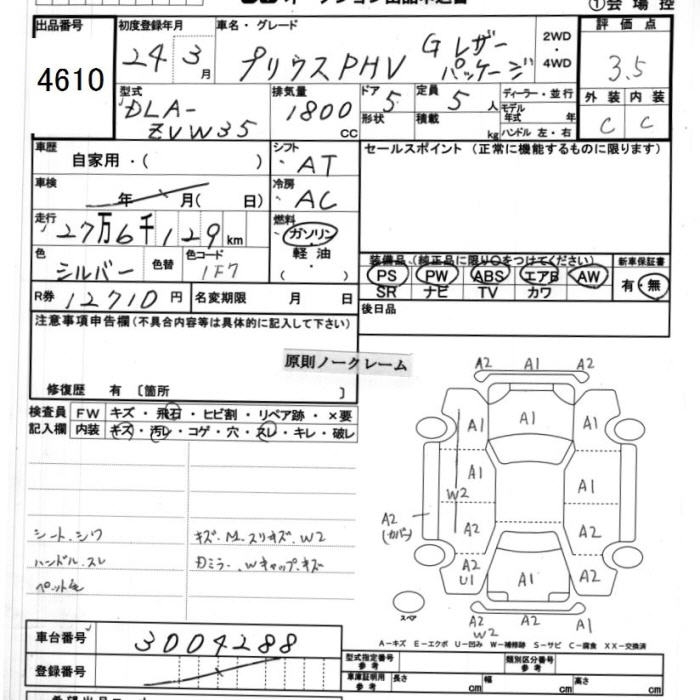 ①会場控
出品番号 4610
初度登録年月 24 3月
車名・グレード プリウスPHV Gレザーパッケージ
2WD・4WD
評価点 3.5
外装 C 内装 C
型式 DLA-ZVW35
排気量 1800 CC
ドア 5 定員 5人
形状 積載 kg
ディーラー・並行
モデル年式 年
ハンドル 左・右
車歴 自家用・( )
シフト AT
セールスポイント(正常に機能するものに限ります)
車検 年 月( 日)
冷房 AC
走行 27万6千129km
燃料 ガソリン・軽油・( )
色 シルバー 色替 色コード 1F7
装備品(純正品に限り○をつけてください)
PS PW ABS エアB AW
SR ナビ TV カワ
新車保証書 有・無
R券 12710円 名変期限 月 日
後日品
注意事項申告欄(不具合内容等は具体的に記入して下さい)
原則ノークレーム
修復歴 有〔箇所 〕
検査員記入欄
FW キズ・飛石・ヒビ割・リペア跡・×要
内装 キズ・汚レ・コゲ・穴・スレ・キレ・破レ
シート、シワ
キズ、M、スリキズ、W2
ハンドル、スレ
Dミラー、Wキャップ、キズ
A2 A1 A2
A1 A1 A1
W2 A1 A1
A2 (カバー)
A2 A2
A2 U1 A1 A2
スペア
A2 W2 A2 A1
A-キズ E-エクボ U-凹み W-補修跡 S-サビ C-腐食 XX-交換済
車台番号 3004288
登録番号
型式指定番号 参考 類別区分番号 参考
車庫証明用 参考 長さ cm 幅 cm 高さ cm